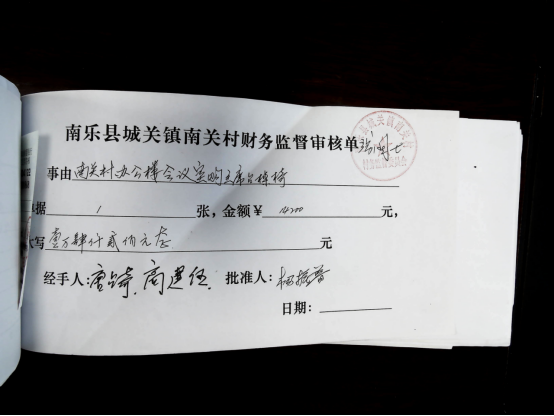 南乐县城关镇南关村财务监督审核单
事由 南关村办公楼会议室购主席台棹椅
单据 1 张,金额¥ 14200 元,
大写 壹万肆仟贰佰元 元
经手人: 高建伍 批准人:
日期: